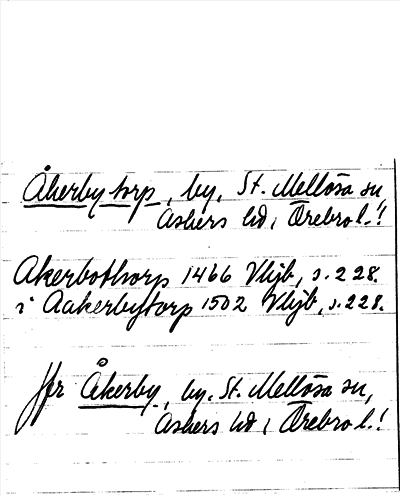 Åkerby torp, by, St. Mellösa sn,
Askers hd, Örebro l.!
Akerbothorp 1466 Vlijb, s. 228.
i Aakerbytorp 1502 Vlijb, s. 228.
Jfr Åkerby, by, St. Mellösa sn,
Askers hd, Örebro l.!